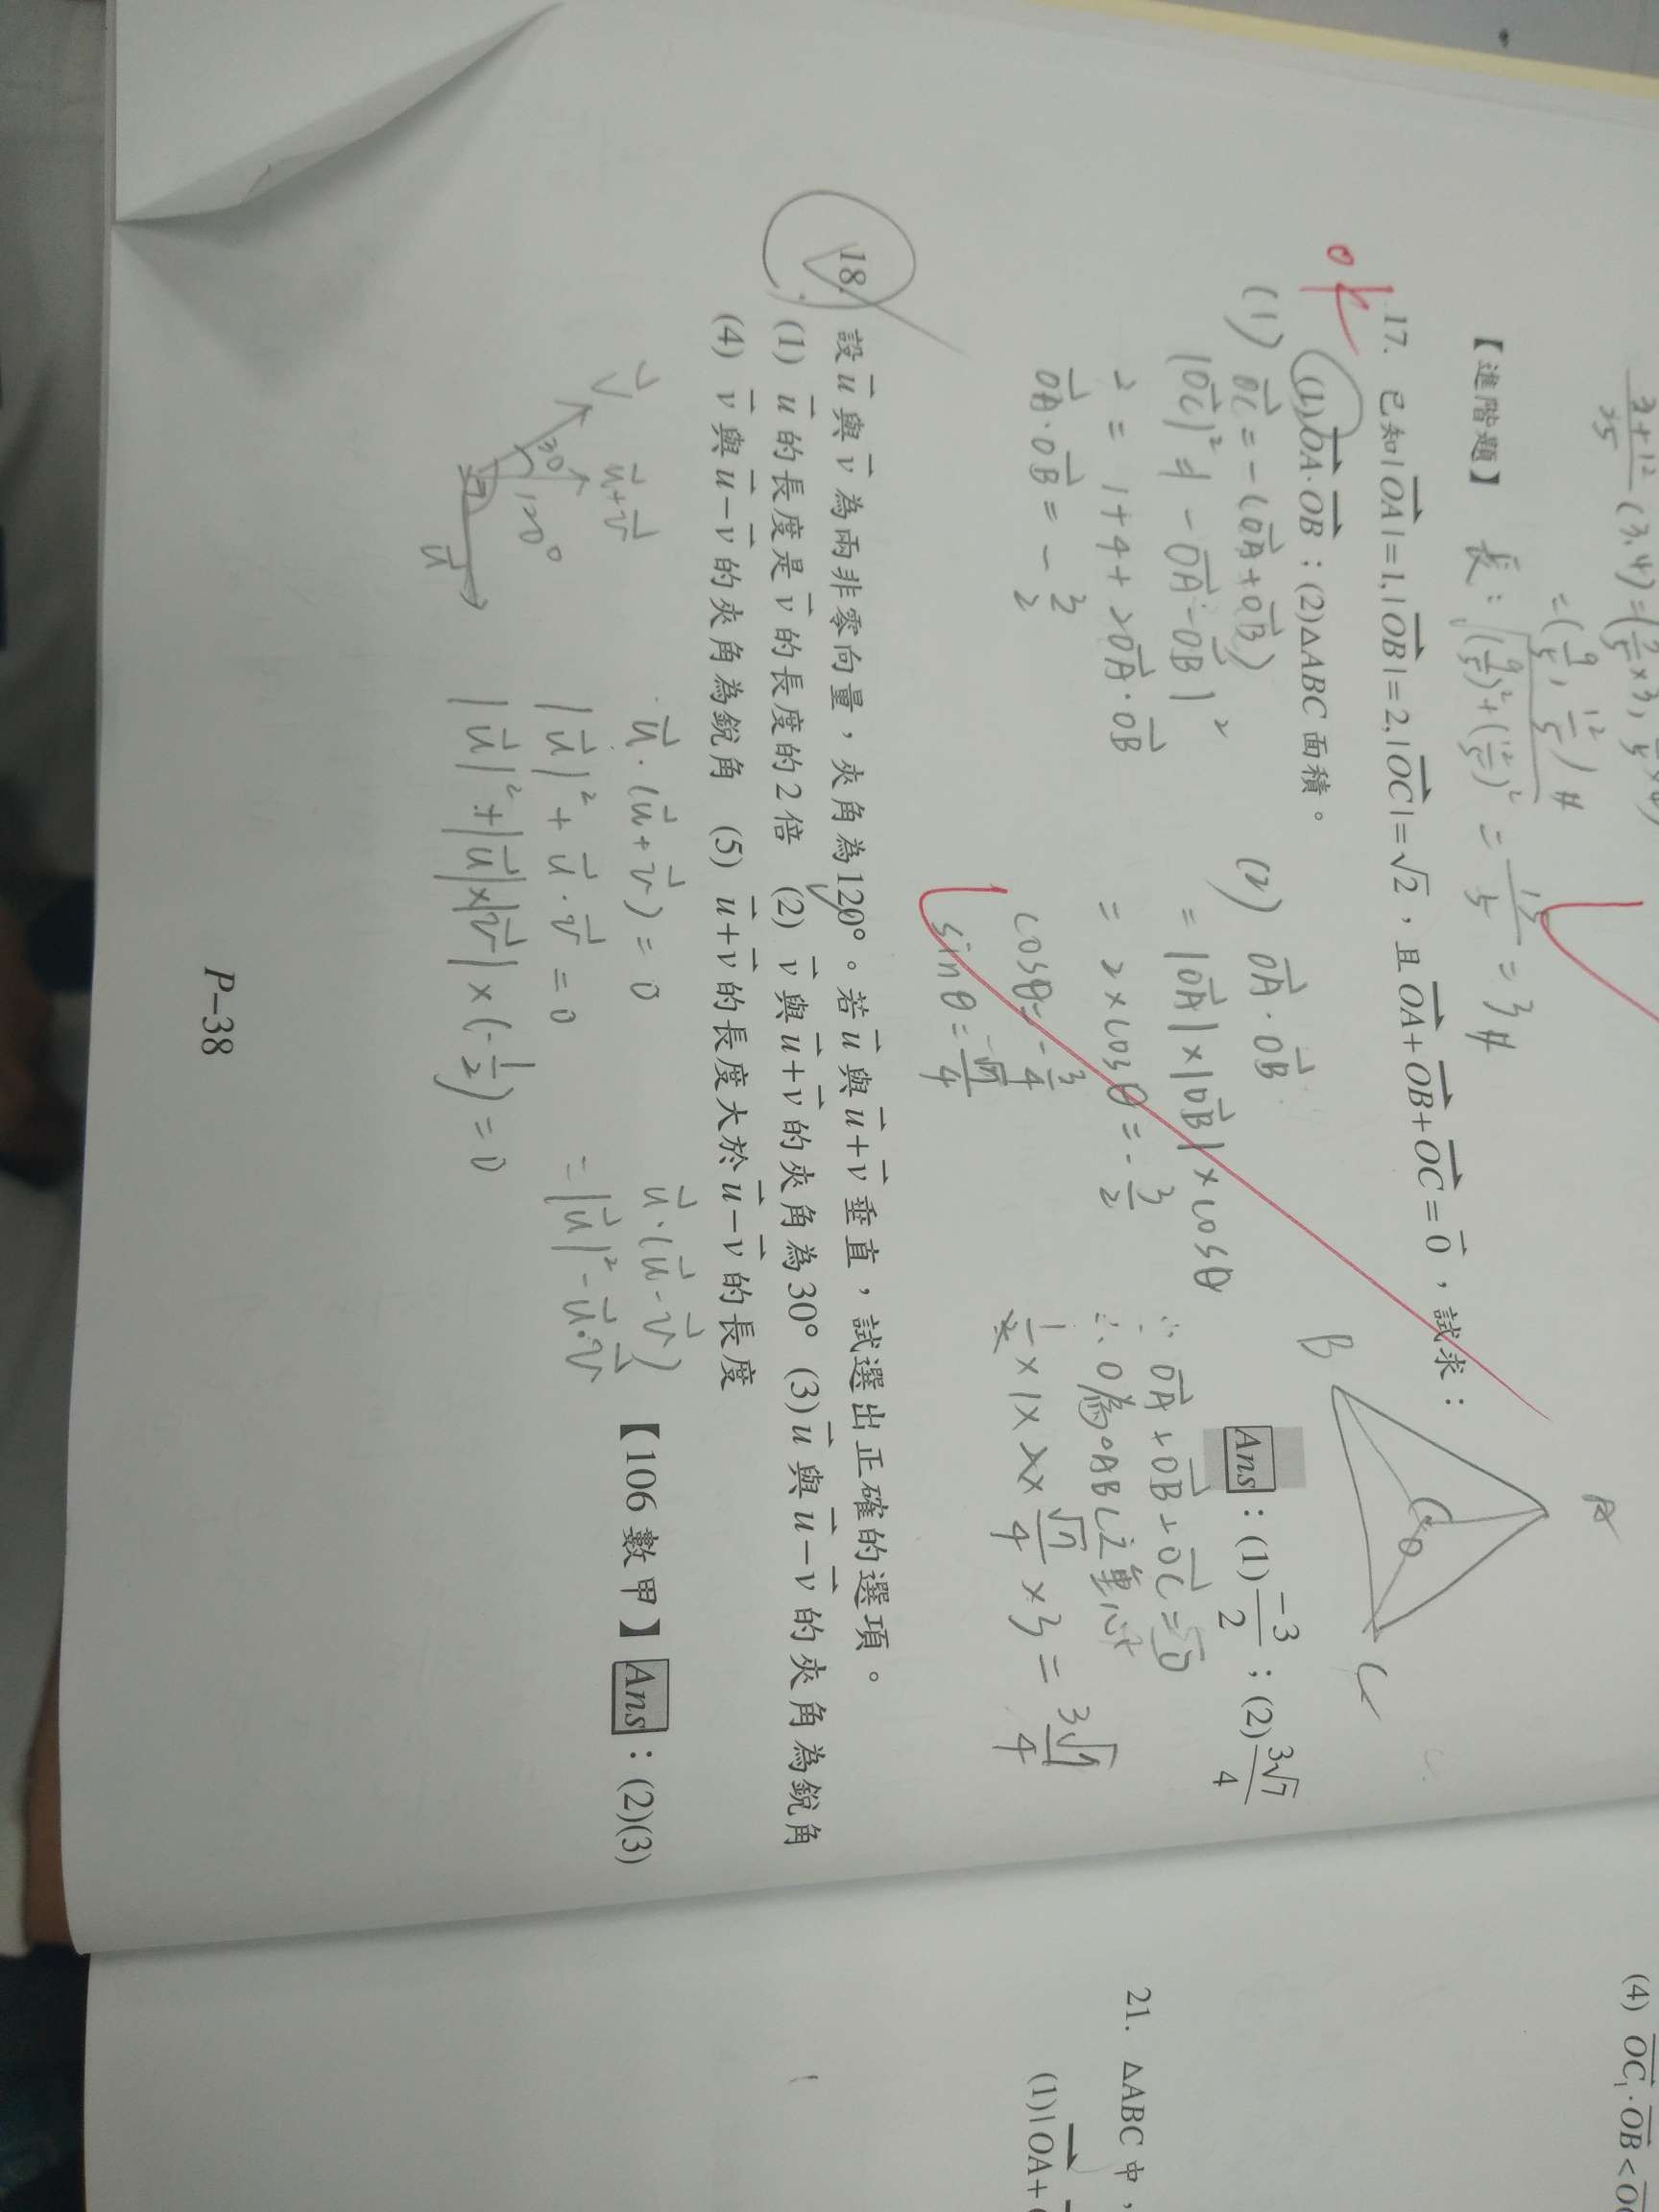 (3,4)=(
=(9/5, 12/5)#
【進階題】 長：√(9/5)²+(12/5)² = 15/5 = 3#
17. 已知|OA|=1,|OB|=2,|OC|=√2，且OA+OB+OC=0，試求：
(1)OA·OB；(2)△ABC面積。
Ans：(1)-3/2；(2)3√7/4
A
B
C
O
(1) OC=-(OA+OB)
|OC|²=|-OA-OB|²
2=1+4+2OA·OB
OA·OB=-3/2
(2) OA·OB
=|OA|×|OB|×cosθ
=2×cosθ=-3/2
cosθ=-3/4
sinθ=√7/4
∵OA+OB+OC=0
∴O為△ABC之重心
×1×2×√7/4×3=3√7/4
18. 設u與v為兩非零向量，夾角為120°。若u與u+v垂直，試選出正確的選項。
(1) u的長度是v的長度的2倍 (2) v與u+v的夾角為30° (3)u與u−v的夾角為銳角
(4) v與u−v的夾角為銳角 (5) u+v的長度大於u−v的長度
【106數甲】Ans：(2)(3)
v
u+v
30
120°
u
u·(u+v)=0
|u|²+u·v=0
|u|²+|u|×|v|×(-1/2)=0
u·(u-v)
=|u|²-u·v
P–38
(4) OC₁·OB<
21. △ABC中，
(1)|OA+